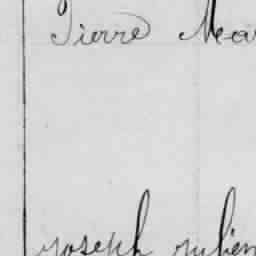 Pierre Mar
joseph julien